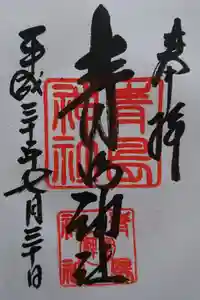 奉拝
青島神社
平成三十年七月三十日
青島
神社